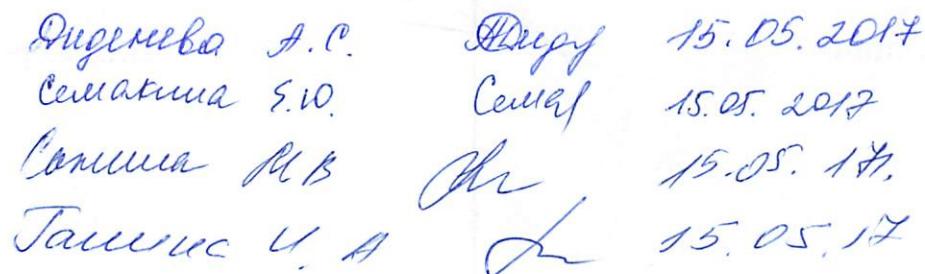 Диденева А.С. 15.05.2017
Семакина Е.Ю. 15.05.2017
Сонина М В 15.05.17г.
И. А 15.05.17